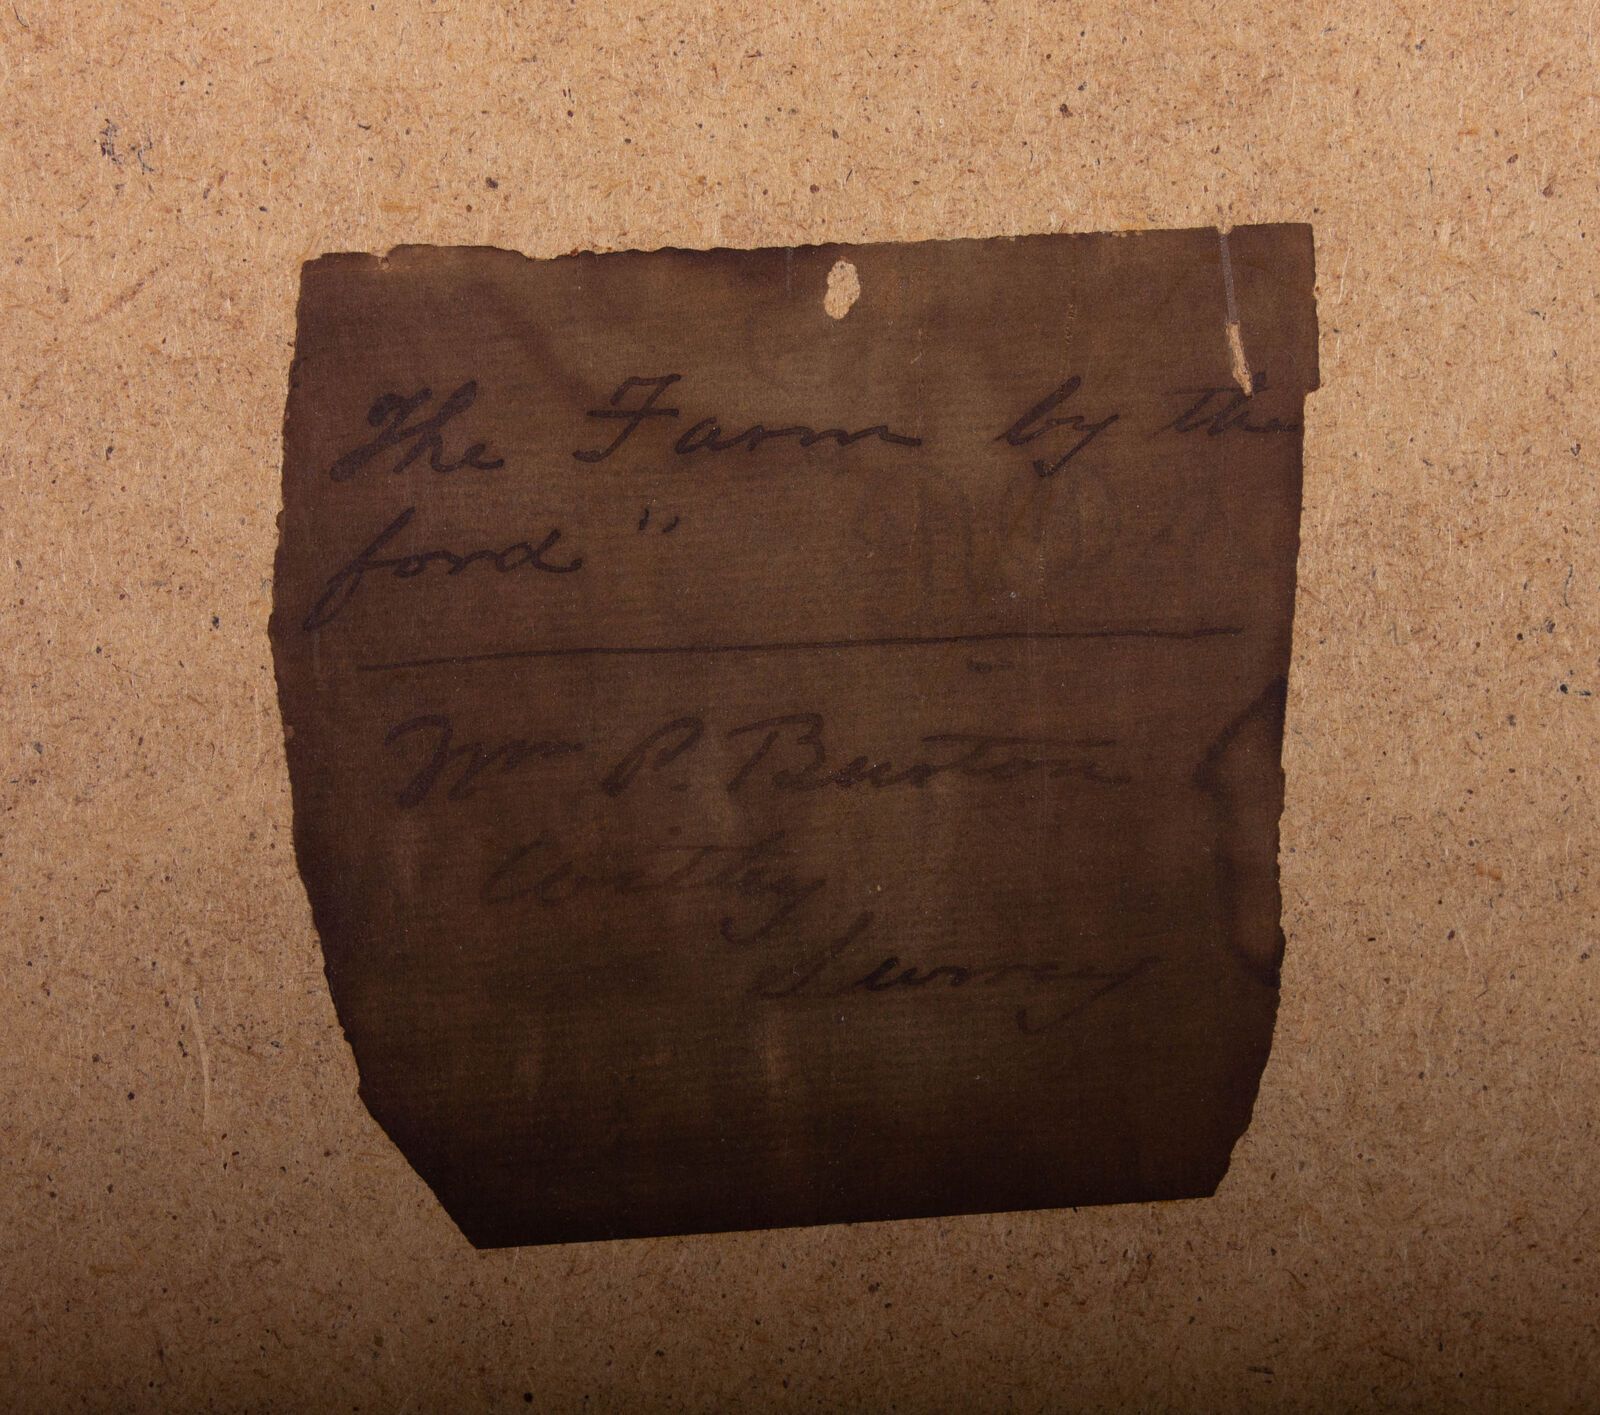 The Farm by the
ford"
Wm P. Burton
Witley
Surrey